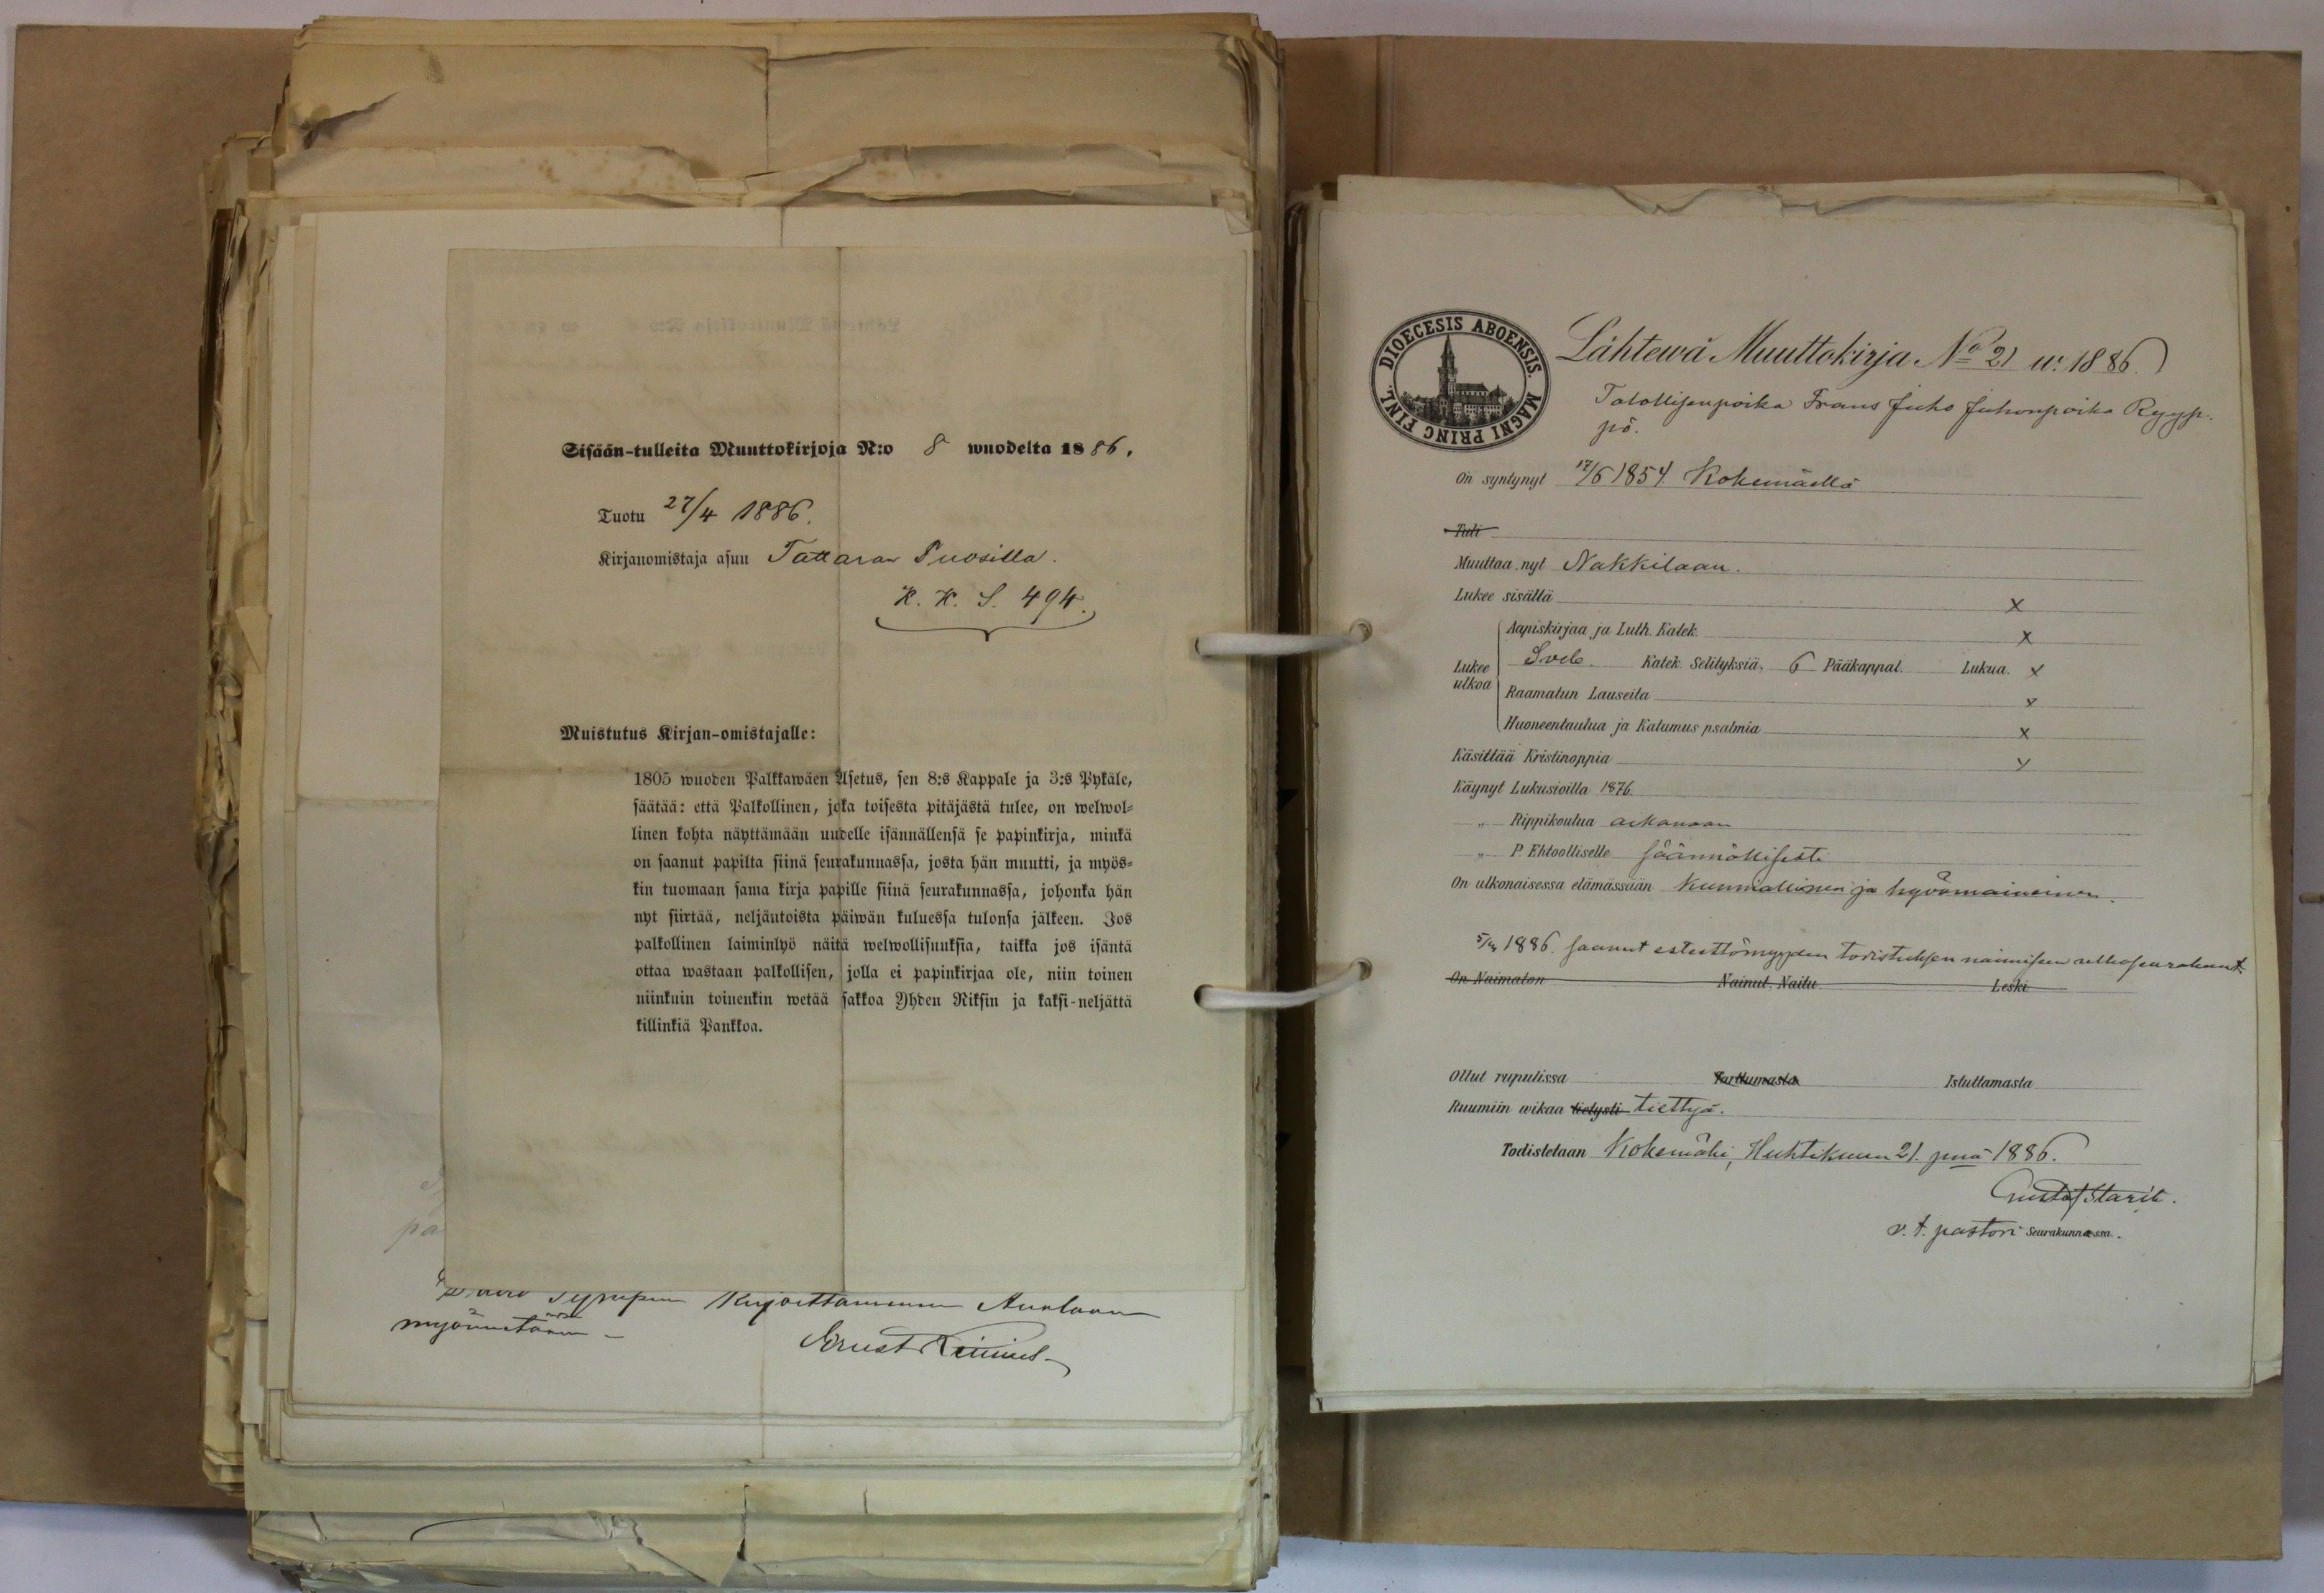 Sisään-tulleita Muuttokirjoja N:o 8 wuodelta 1886.
Tuotu 27/4 1886.
Kirjanomistaja asuu Tattaran Puosilla.
K. K. S. 494.
Muistutus Kirjan-omistajalle:
1805 wuoden Palkkawäen Asetus, sen 8:s Kappale ja 3:s Pykäle,
säätää: että Palkollinen, joka toisesta pitäjästä tulee, on welwol-
linen kohta näyttämään uudelle isännällensä se papinkirja, minkä
on saanut papilta siinä seurakunnassa, josta hän muutti, ja myös-
kin tuomaan sama kirja papille siinä seurakunnassa, johonka hän
nyt siirtää, neljäutoista päiwän kuluessa tulonsa jälkeen. Jos
palkollinen laiminlyö näitä welwollisuuksia, taikka jos isäntä
ottaa wastaan palkollisen, jolla ei papinkirjaa ole, niin toinen
niinkuin toinenkin wetää sakkoa Yhden Riksin ja kaksi-neljättä
killinkiä Pankkoa.
pa
Kirjoittamisen
myönnetään
Ernst
DIOECESIS ABOENSIS. MAGNI PRINC FINL.
Lähtewä Muuttokirja No 21 w. 1886
Talollisenpoika Frans Juho Juhonpoika Ryyp-
pö.
On syntynyt 17/6 1854 Kokemäellä
Tuli
Muuttaa nyt Nakkilaan.
Lukee sisältä x
Aapiskirjaa ja Luth. Katek. x
Lukee ulkoa Sveb. Katek. Selityksiä, 6 Pääkappal. Lukua. x
Raamatun Lauseita x
Huoneentaulua ja Katumus psalmia x
Käsittää Kristinoppia x
Käynyt Lukusioilla 1876.
„ Rippikoulua aikanaan
„ P. Ehtoolliselle säännöllisesti
On ulkonaisessa elämässään kunniallinen ja hyvämaineinen.
5/4 1886 saanut esteettömyyden todistuksen naimiseen
On Naimaton Nainut, Naitu Leski
Ollut rupulissa Tarttumasta Istuttamasta
Ruumiin wikaa tietysti tiettyä.
Todistetaan Kokemäki, Huhtikuun 21 pnä 1886.
Gustaf
v. t. pastori Seurakunnassa.